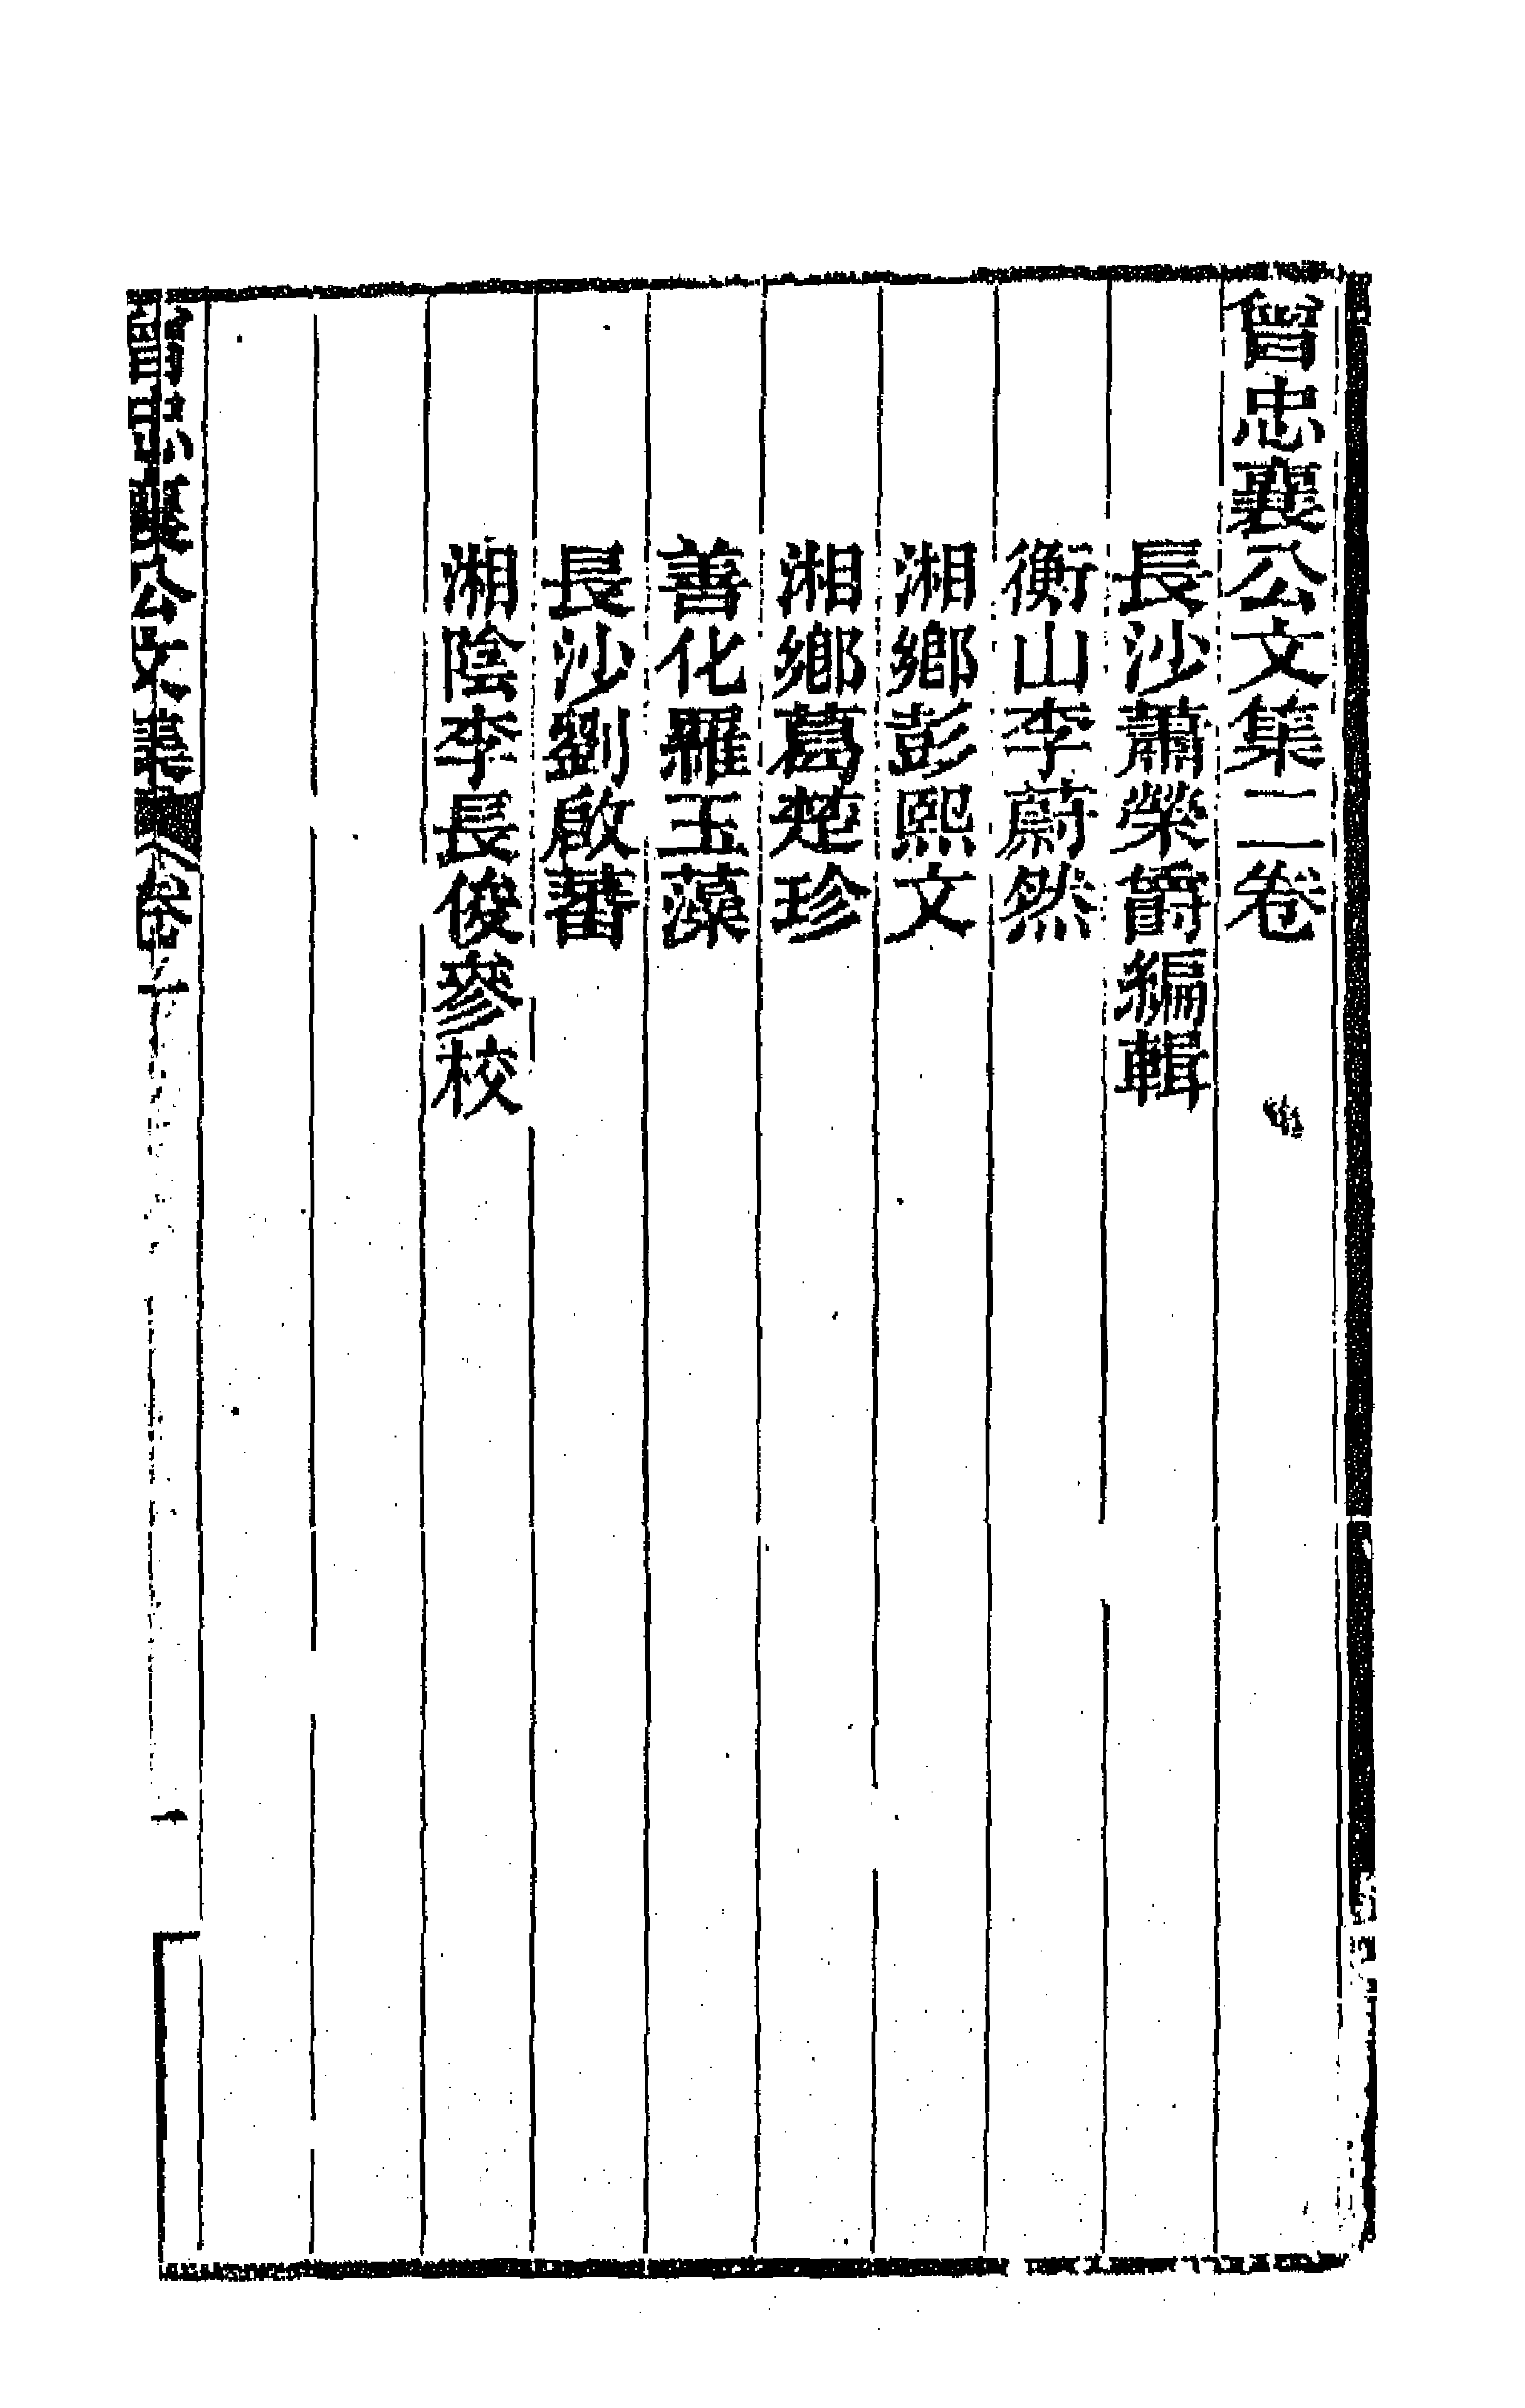 曾忠襄公文集二卷
長沙蕭榮爵編輯
衡山李蔚然
湘鄉彭熙文
湘鄉葛楚珍
善化羅玉藻
長沙劉啟蕃
湘陰李長俊參校
曾忠襄公文集 卷一 一